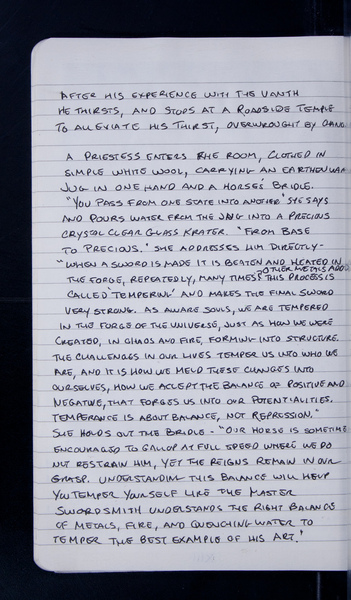 AFTER HIS EXPERIENCE WITH THE VANTH
HE THIRSTS, AND STOPS AT A ROADSIDE TEMPLE
TO ALLEVIATE HIS THIRST, OVERWROUGHT BY
A PRIESTESS ENTERS RHE ROOM, CLOTHED IN
SIMPLE WHITE WOOL, CARRYING AN EARTHENWAR
JUG IN ONE HAND AND A HORSES' BRIDLE.
"YOU PASS FROM ONE STATE INTO ANOTHER" SHE SAYS
AND POURS WATER FROM THE JUG INTO A PRECIOUS
CRYSTAL CLEAR GLASS KRATER. "FROM BASE
TO PRECIOUS." SHE ADDRESSES HIM DIRECTLY-
"WHEN A SWORD IS MADE IT IS BEATEN AND HEATED IN
OTHER METALS ADDED
THE FORGE, REPEATEDLY, MANY TIMES. THIS PROCESS IS
CALLED 'TEMPERING' AND MAKES THE FINAL SWORD
VERY STRONG. AS AWARE SOULS, WE ARE TEMPERED
IN THE FORGE OF THE UNIVERSE, JUST AS HOW WE WERE
CREATED, IN CHAOS AND FIRE, FORMING INTO STRUCTURE.
THE CHALLENGES IN OUR LIVES TEMPER US INTO WHO WE
ARE, AND IT IS HOW WE MELD THESE CHANGES INTO
OURSELVES, HOW WE ACCEPT THE BALANCE OF POSITIVE AND
NEGATIVE, THAT FORGES US INTO OUR POTENTIALITIES.
TEMPERANCE IS ABOUT BALANCE, NOT REPRESSION."
SHE HOLDS OUT THE BRIDLE - "OUR HORSE IS SOMETIME
ENCOURAGED TO GALLOP AT FULL SPEED WHERE WE DO
NOT RESTRAIN HIM, YET THE REIGNS REMAIN IN OUR
GRASP. UNDERSTANDING THIS BALANCE WILL HELP
YOU TEMPER YOURSELF LIKE THE MASTER
SWORDSMITH UNDERSTANDS THE RIGHT BALANCE
OF METALS, FIRE, AND QUENCHING WATER TO
TEMPER THE BEST EXAMPLE OF HIS ART."